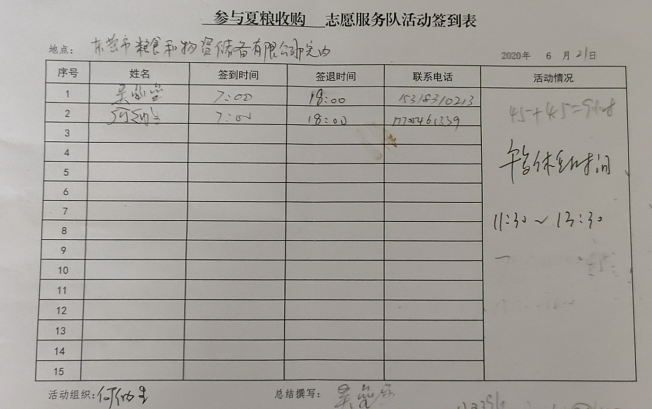 参与夏粮收购 志愿服务队活动签到表
地点: 东营市粮食和物资储备有限公司院内 2020年 6 月 21日
序号 姓名 签到时间 签退时间 联系电话 活动情况
1 7:00 18:00 15318310213
2 7:00 18:00
3
4
5
6
7
8
9
10
11
12
13
14
15
45+45=9
午饭休息时间
11:30~13:30
活动组织:
总结撰写: